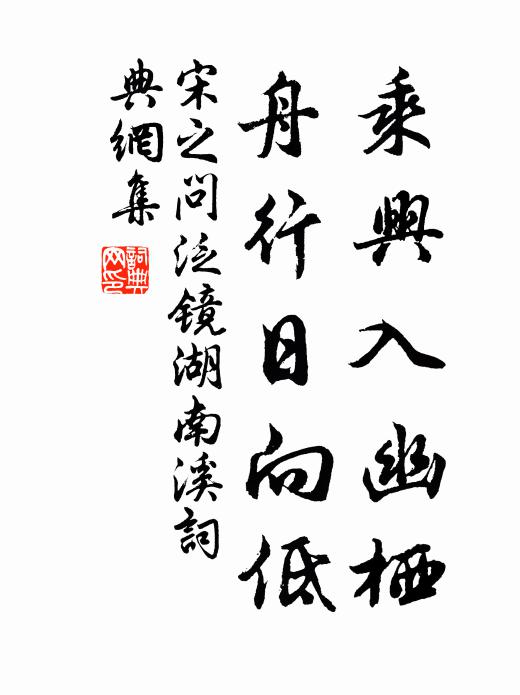 乘興入幽栖
舟行日向低
宋之問泛镜湖南溪詞
典網集
詞典
网印